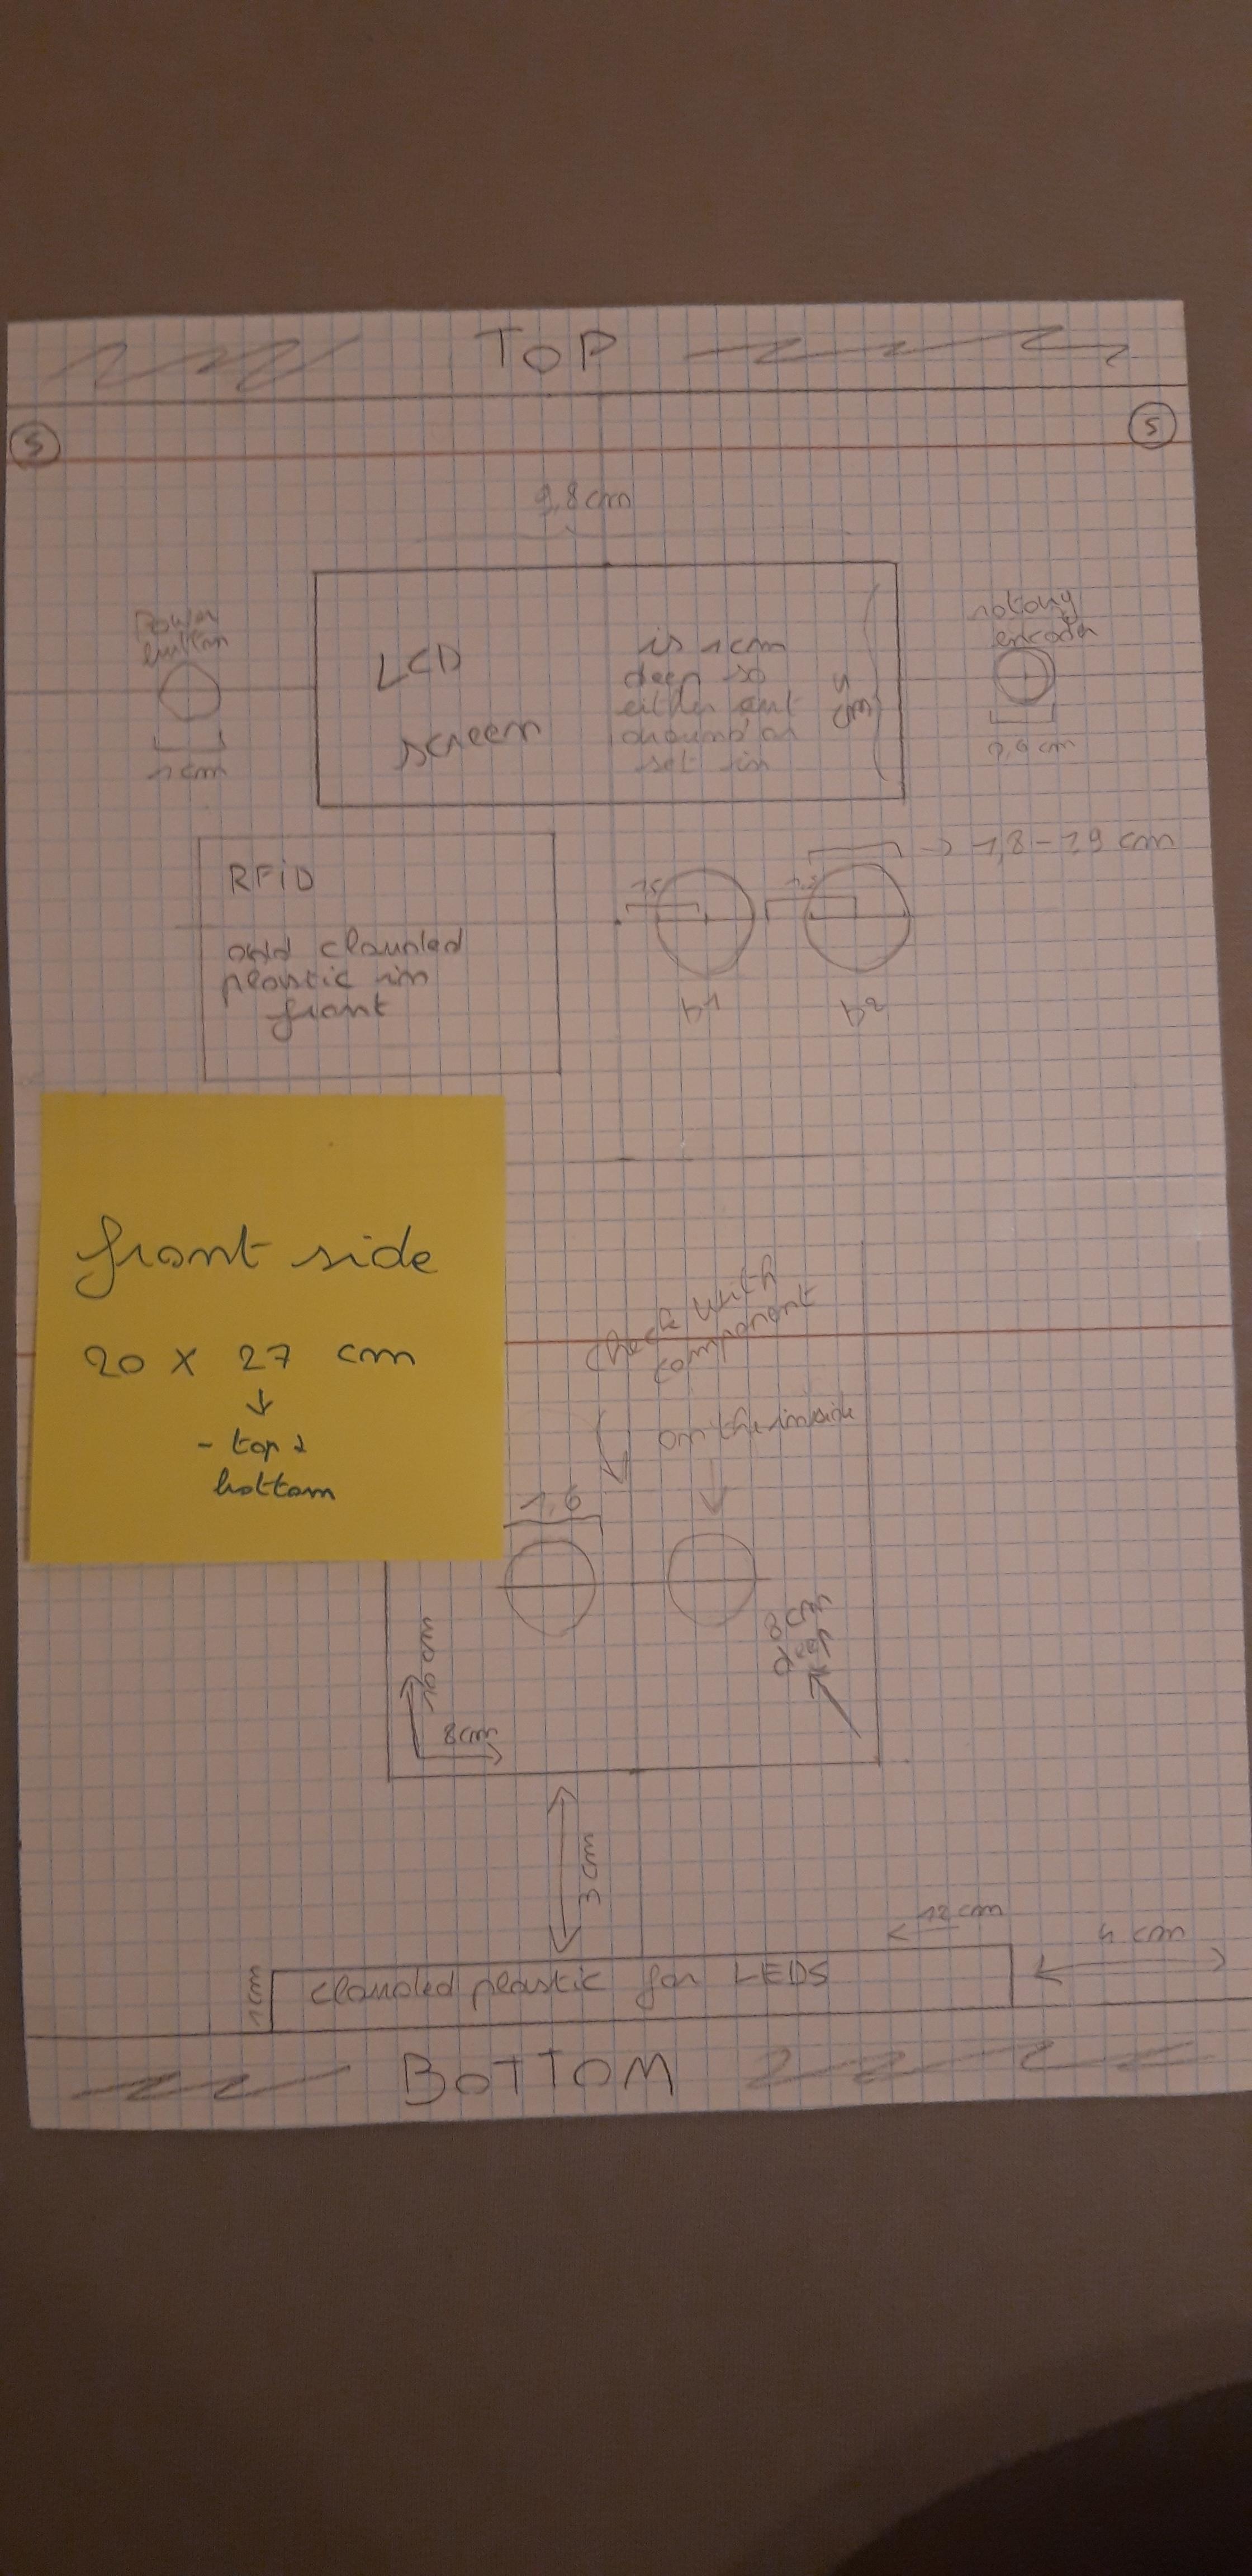 TOP
S
S
9,8cm
Power
button
1cm
LCD
screen
is 1cm
deep so
either cut
out or
set in
cm
rotary
encoder
0,9 cm
RFiD
add clouded
plastic in
front
1,5
1,5
→ 1,8 - 1,9 cm
b1
b2
front side
20 x 27 cm
↓
- top &
bottom
check with
component
on the inside
1,6
8cm
deep
10cm
8cm
3cm
12 cm
4 cm
1cm
clouded plastic for LEDS
BOTTOM